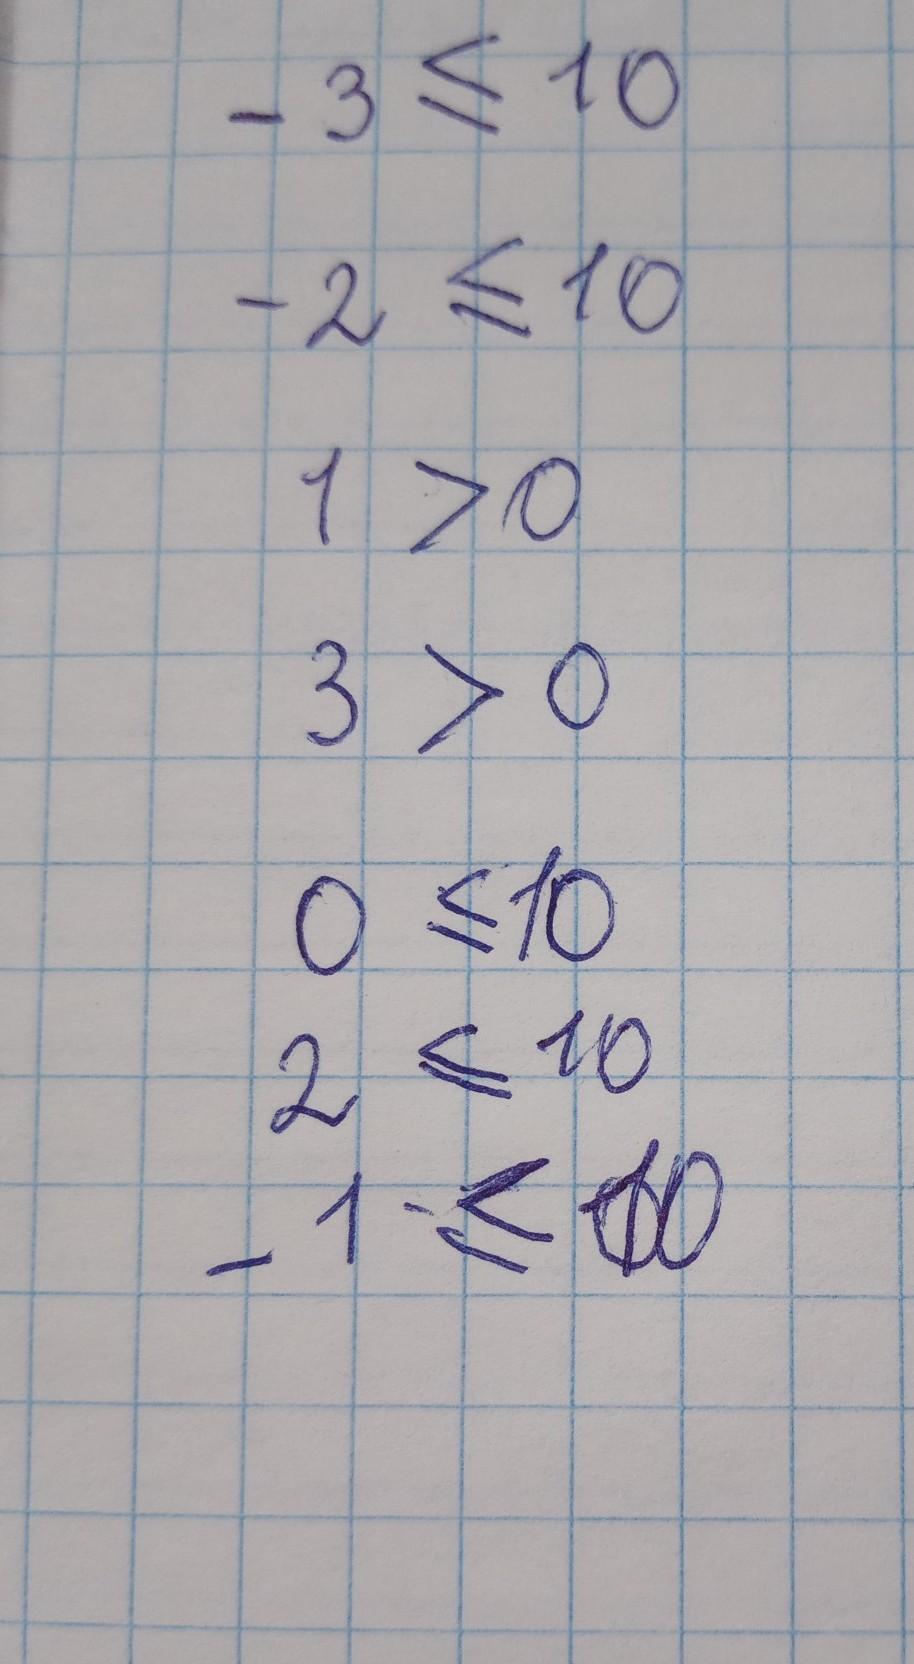 -3 ≤ 10
-2 ≤ 10
1 > 0
3 > 0
0 ≤ 10
2 ≤ 10
-1 ≤ 10